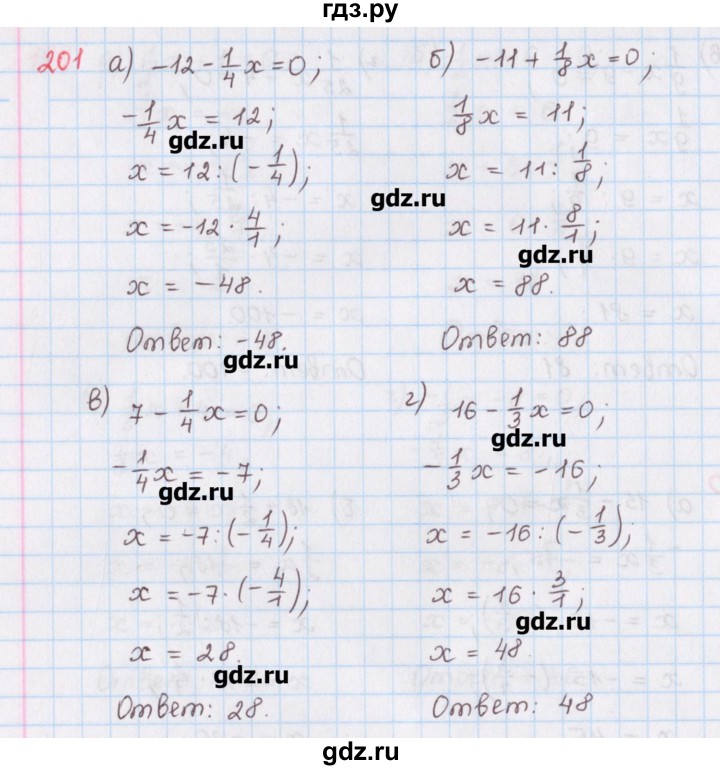 гдз.ру
201 а) -12 - 1/4 x = 0;
-1/4 x = 12;
gdz.ru
x = 12 : (-1/4);
x = -12 · 4/1;
x = -48.
Ответ: -48.
gdz.ru
б) -11 + 1/8 x = 0;
1/8 x = 11;
x = 11 : 1/8;
gdz.ru
x = 11 · 8/1;
gdz.ru
x = 88.
Ответ: 88
в) 7 - 1/4 x = 0;
-1/4 x = -7;
gdz.ru
x = -7 : (-1/4);
x = -7 · (-4/1);
x = 28.
gdz.ru
Ответ: 28.
г) 16 - 1/3 x = 0;
gdz.ru
-1/3 x = -16;
x = -16 : (-1/3);
x = 16 · 3/1;
gdz.ru
x = 48.
Ответ: 48
gdz.ru